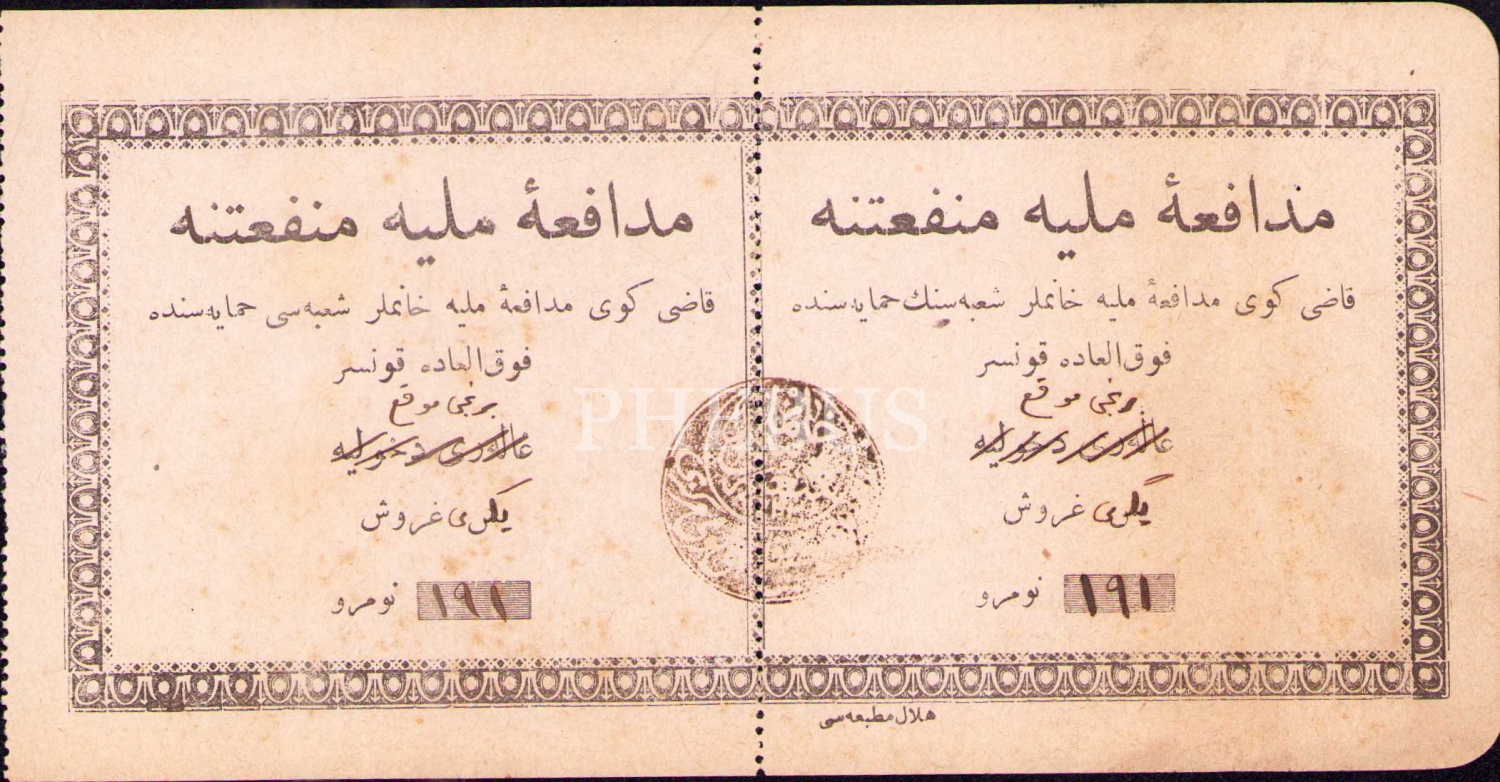 مدافعهٔ ملیه منفعتنه
قاضی كوی مدافعهٔ ملیه خانملر شعبه‌سنك حمایه‌سنده
فوق العاده قونسر
برنجی موقع
یكرمی غروش
نومرو ١٩١
مدافعهٔ ملیه منفعتنه
قاضی كوی مدافعهٔ ملیه خانملر شعبه‌سی حمایه‌سنده
فوق العاده قونسر
برنجی موقع
یكرمی غروش
نومرو ١٩١
هلال مطبعه‌سی
PHEBUS